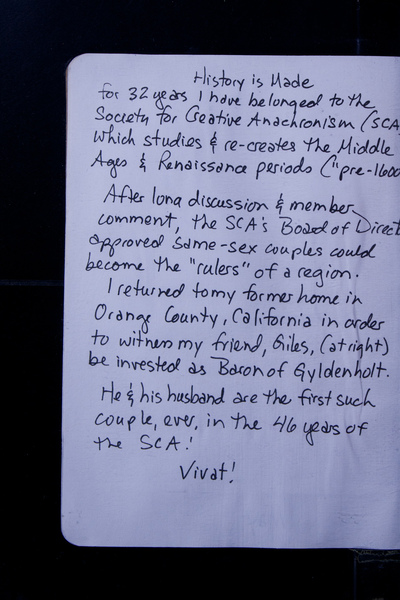 History is Made
for 32 years I have belonged to the
Society for Creative Anachronism (SCA
which studies & re-creates the Middle
Ages & Renaissance periods ("pre-1600
After long discussion & member
comment, the SCA's Board of Direct
approved same-sex couples could
become the "rulers" of a region.
I returned to my former home in
Orange County, California in order
to witness my friend, Giles, (at right)
be invested as Baron of Gyldenholt.
He & his husband are the first such
couple, ever, in the 46 years of
the SCA!
Vivat!